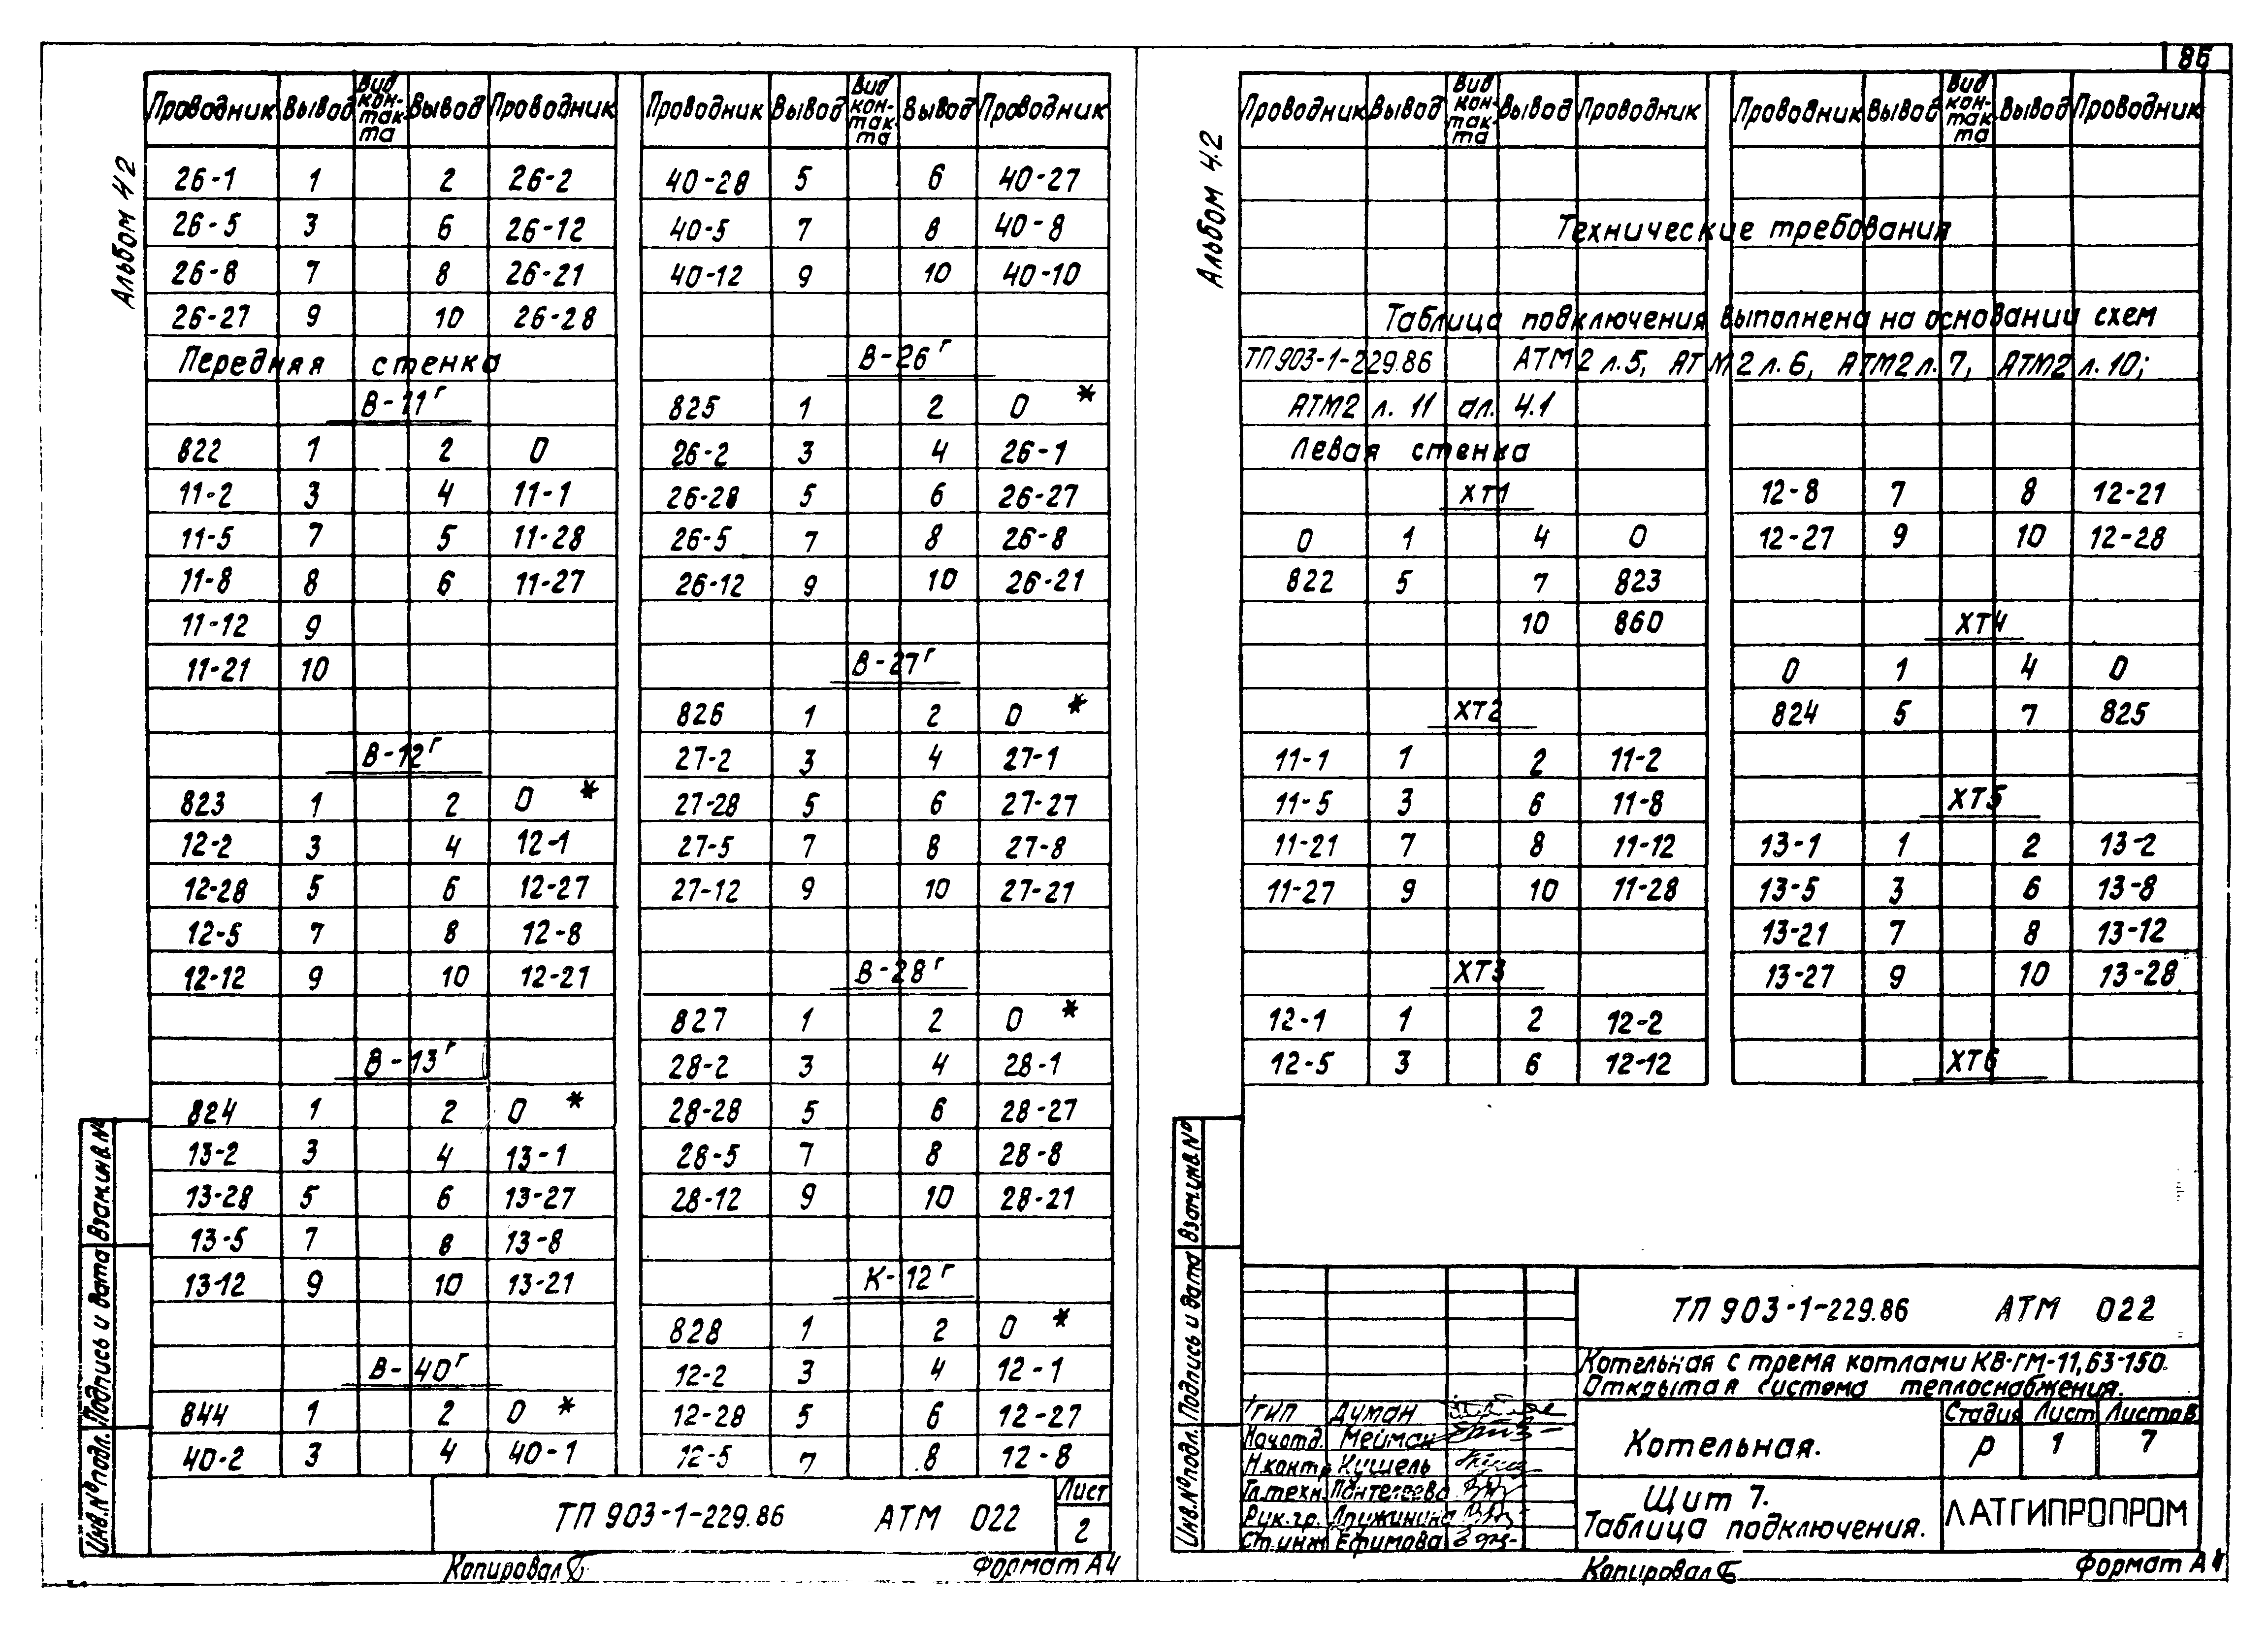 86
Альбом 4.2
Проводник Вывод Вид контакта Вывод Проводник
26-1 1 2 26-2
26-5 3 6 26-12
26-8 7 8 26-21
26-27 9 10 26-28
Передняя стенка
В-11г
822 1 2 0
11-2 3 4 11-1
11-5 7 5 11-28
11-8 8 6 11-27
11-12 9
11-21 10
В-12г
823 1 2 0 *
12-2 3 4 12-1
12-28 5 6 12-27
12-5 7 8 12-8
12-12 9 10 12-21
В-13г
824 1 2 0 *
13-2 3 4 13-1
13-28 5 6 13-27
13-5 7 8 13-8
13-12 9 10 13-21
В-40г
844 1 2 0 *
40-2 3 4 40-1
Проводник Вывод Вид контакта Вывод Проводник
40-28 5 6 40-27
40-5 7 8 40-8
40-12 9 10 40-10
В-26г
825 1 2 0 *
26-2 3 4 26-1
26-28 5 6 26-27
26-5 7 8 26-8
26-12 9 10 26-21
В-27г
826 1 2 0 *
27-2 3 4 27-1
27-28 5 6 27-27
27-5 7 8 27-8
27-12 9 10 27-21
В-28г
827 1 2 0 *
28-2 3 4 28-1
28-28 5 6 28-27
28-5 7 8 28-8
28-12 9 10 28-21
К-12г
828 1 2 0 *
12-2 3 4 12-1
12-28 5 6 12-27
12-5 7 8 12-8
Инв.№подл. Подпись и дата Взам.инв.№
ТП 903-1-229.86 АТМ 022
Лист
2
Копировал
Формат А4
Альбом 4.2
Проводник Вывод Вид контакта Вывод Проводник
Проводник Вывод Вид контакта Вывод Проводник
Технические требования
Таблица подключения выполнена на основании схем
ТП 903-1-229.86 АТМ2 л.5, АТМ2 л.6, АТМ2 л.7, АТМ2 л.10;
АТМ2 л. 11 ал. 4.1
Левая стенка
ХТ1
0 1 4 0
822 5 7 823
10 860
ХТ2
11-1 1 2 11-2
11-5 3 6 11-8
11-21 7 8 11-12
11-27 9 10 11-28
ХТ3
12-1 1 2 12-2
12-5 3 6 12-12
12-8 7 8 12-21
12-27 9 10 12-28
ХТ4
0 1 4 0
824 5 7 825
ХТ5
13-1 1 2 13-2
13-5 3 6 13-8
13-21 7 8 13-12
13-27 9 10 13-28
ХТ6
Инв.№подл. Подпись и дата Взам.инв.№
ТП 903-1-229.86 АТМ 022
Котельная с тремя котлами КВ-ГМ-11,63-150.
Открытая система теплоснабжения.
ГИП Думан
Нач.отд. Мейман
Н.контр Кушель
Гл.техн. Пантелеева
Рук.гр. Пружинина
Ст.инж Ефимова
Котельная.
Стадия Лист Листов
Р 1 7
Щит 7.
Таблица подключения.
ЛАТГИПРОПРОМ
Копировал
Формат А4